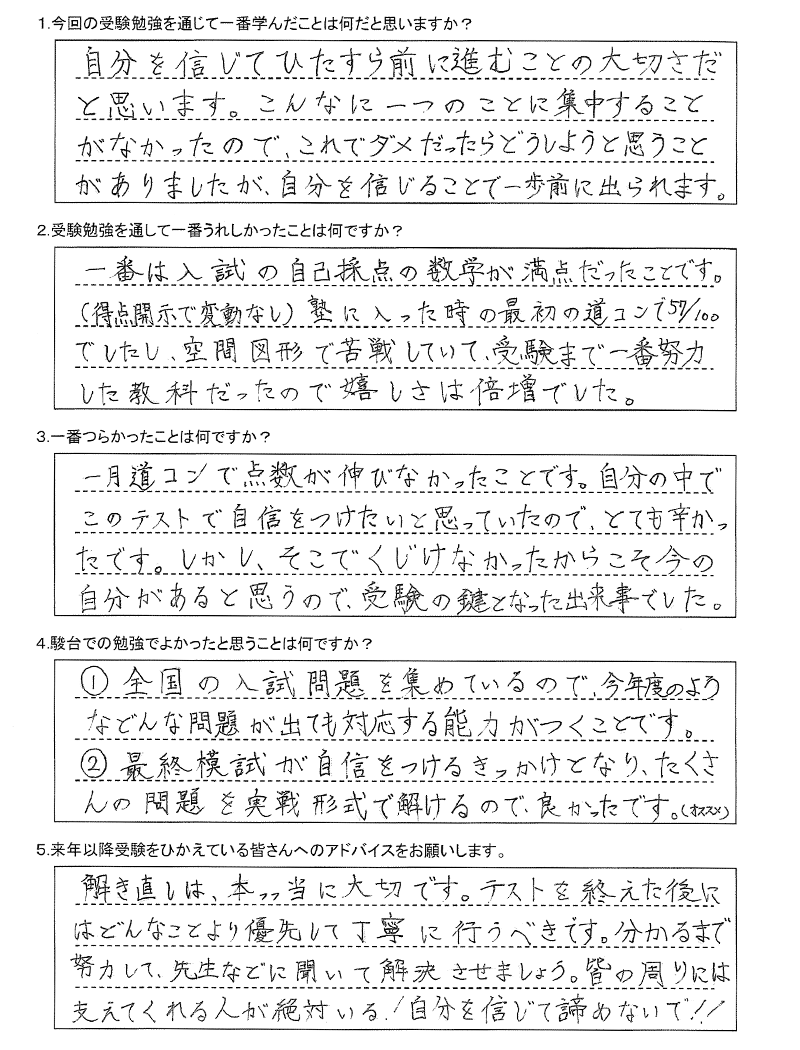 1.今回の受験勉強を通じて一番学んだことは何だと思いますか？
自分を信じてひたすら前に進むことの大切さだ
と思います。こんなに一つのことに集中すること
がなかったので、これでダメだったらどうしようと思うこと
がありましたが、自分を信じることで一歩前に出られます。
2.受験勉強を通して一番うれしかったことは何ですか？
一番は入試の自己採点の数学が満点だったことです。
(得点開示で変動なし)塾に入った時の最初の道コンで57/100
でしたし、空間図形で苦戦していて、受験まで一番努力
した教科だったので嬉しさは倍増でした。
3.一番つらかったことは何ですか？
一月道コンで点数が伸びなかったことです。自分の中で
このテストで自信をつけたいと思っていたので、とても辛かっ
たです。しかし、そこでくじけなかったからこそ今の
自分があると思うので、受験の鍵となった出来事でした。
4.駿台での勉強でよかったと思うことは何ですか？
①全国の入試問題を集めているので、今年度のよう
などんな問題が出ても対応する能力がつくことです。
②最終模試が自信をつけるきっかけとなり、たくさ
んの問題を実戦形式で解けるので、良かったです。(オススメ)
5.来年以降受験をひかえている皆さんへのアドバイスをお願いします。
解き直しは、本っっ当に大切です。テストを終えた後に
はどんなことより優先して丁寧に行うべきです。分かるまで
努力して、先生などに聞いて解決させましょう。皆の周りには
支えてくれる人が絶対いる！自分を信じて諦めないで！！